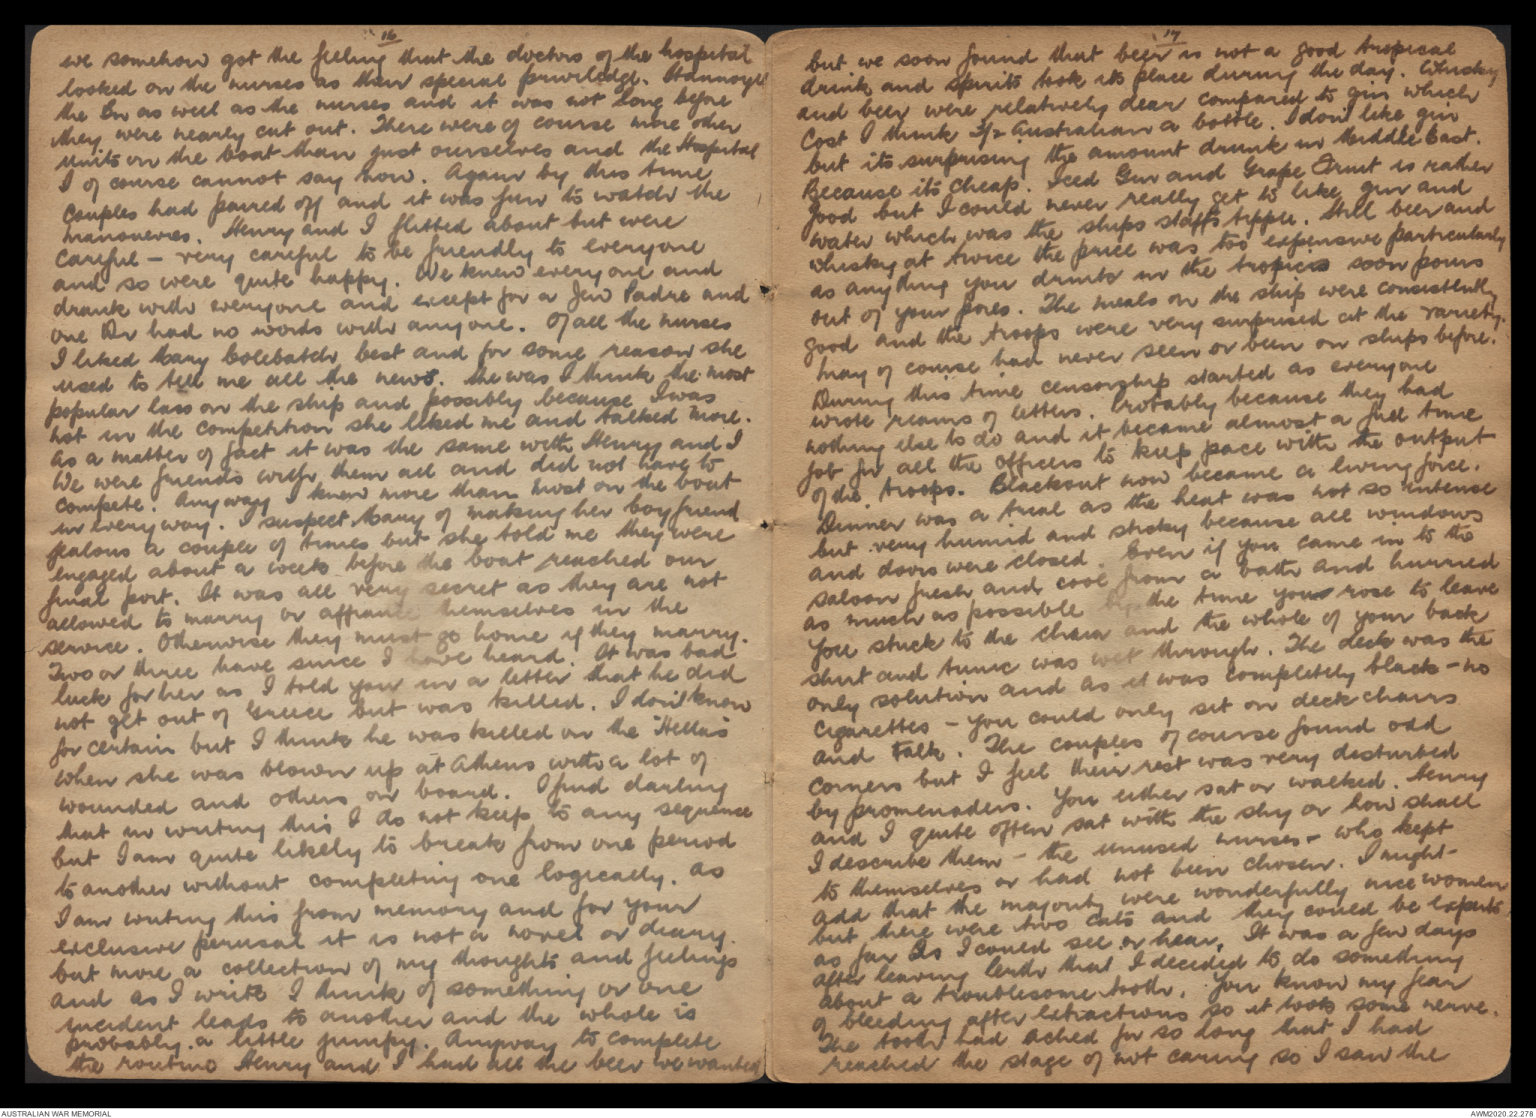 16
we somehow got the feeling that the doctors of the hospital
looked on the nurses as their special priviledge. It annoyed
the Drs as well as the nurses and it was not long before
they were nearly cut out. There were of course more other
units on the boat than just ourselves and the Hospital
I of course cannot say now. Again by this time
couples had paired off and it was fun to watch the
manouevres. Henry and I flitted about but were
careful – very careful to be friendly to everyone
and so were quite happy. We knew everyone and
drank with everyone and except for a Jew Padre and
one Dr had no words with anyone. Of all the nurses
I liked Mary Bolebatch best and for some reason she
used to tell me all the news. She was I think the most
popular lass on the ship and possibly because I was
not in the competition she liked me and talked more.
As a matter of fact it was the same with Henry and I
We were friends with them all and did not have to
compete. Anyway I knew more than most on the boat
in every way. I suspect Mary of making her boy friend
jealous a couple of times but she told me they were
engaged about a week before the boat reached our
final port. It was all very secret as they are not
allowed to marry or affiance themselves in the
service. Otherwise they must go home if they marry.
Two or three have since I have heard. It was bad
luck for her as I told you in a letter that he did
not get out of Greece but was killed. I don't know
for certain but I think he was killed on the "Hellas"
when she was blown up at Athens with a lot of
wounded and others on board. I find darling
that in writing this I do not keep to any sequence
but I am quite likely to break from one period
to another without completing one logically. As
I am writing this from memory and for your
exclusive perusal it is not a novel or diary
but more a collection of my thoughts and feelings
and as I write I think of something or one
incident leads to another and the whole is
probably a little jumpy. Anyway to complete
the routine Henry and I had all the beer we wanted
17
but we soon found that beer is not a good tropical
drink and spirits took its place during the day. Whisky
and beer were relatively dear compared to gin which
cost I think 3/= Australian a bottle. I don't like gin
but its surprising the amount drunk in Middle East.
Because its cheap. Iced Gin and Grape Fruit is rather
good but I could never really get to like gin and
water which was the ships staffs tipple. Still beer and
whisky at twice the price was too expensive particularly
as anything you drink in the tropics soon pours
out of your pores. The meals on the ship were consistently
good and the troops were very surprised at the variety.
Many of course had never seen or been on ships before.
During this time censorship started as everyone
wrote reams of letters. Probably because they had
nothing else to do and it became almost a full time
job for all the officers to keep pace with the output
of the troops. Blackout now became a living force.
Dinner was a trial as the heat was not so intense
but very humid and sticky because all windows
and doors were closed. Even if you came in to the
saloon fresh and cool from a bath and hurried
as much as possible by the time you rose to leave
you stuck to the chair and the whole of your back
shirt and tunic was wet through. The deck was the
only solution and as it was completely black – no
cigarettes – you could only sit on deck chairs
and talk. The couples of course found odd
corners but I feel their rest was very disturbed
by promenaders. You either sat or walked. Henry
and I quite often sat with the shy or how shall
I describe them – the unused nurses – who kept
to themselves or had not been chosen. I might
add that the majority were wonderfully nice women
but there were two cats and they could be experts
as far as I could see or hear. It was a few days
after leaving Perth that I decided to do something
about a troublesome tooth. You know my fear
of bleeding after extractions so it took some nerve.
The tooth had ached for so long that I had
reached the stage of not caring so I saw the
AUSTRALIAN WAR MEMORIAL
AWM2020.22.278